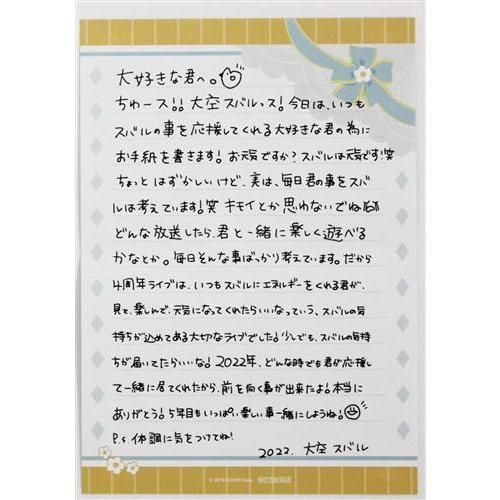 大好きな君へ。
ちゅース!! 大空スバルっス! 今日は、いつも
スバルの事を応援してくれる大好きな君の為に
お手紙を書きます! お元気ですか? スバルは元気です!笑
ちょっとはずかしいけど、実は、毎日君の事をスバ
ルは考えています!笑 キモイとか思わないでね
どんな放送したら、君と一緒に楽しく遊べる
かなとか。毎日そんな事ばっかり考えています。だから
4周年ライブは、いつもスバルにエネルギーをくれる君が、
見て、楽しんで、元気になってくれたらいいなっていう、スバルの気
持ちが込めてある大切なライブでした! 少しでも、スバルの気持
ちが届いてたらいいな! 2022年、どんな時でも君が応援し
て一緒に居てくれたから、前を向く事が出来たよ! 本当に
ありがとう! 5年目もいっぱい楽しい事一緒にしようね!
P.s 体調に気をつけてね!
2022. 大空スバル
© 2016 COVER Corp. NOT FOR SALE